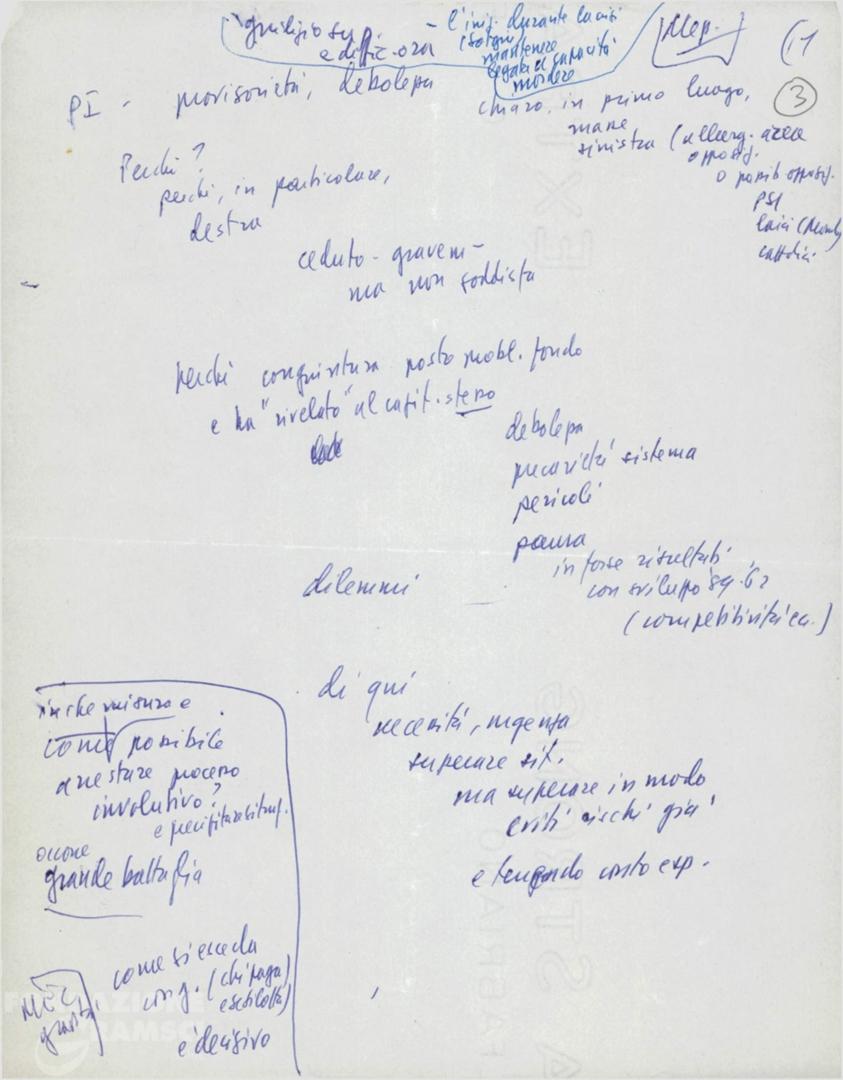 giudizio su
e diffic. ora
- l'iniz. durante la crisi
mantenere
legata a capacità
mordere
(1
3
PI - provvisorietà, debolezza
chiaro, in primo luogo,
mane
sinistra (allarg. area
opposiz.
o possib opposiz.
PSI
laici
cattolici
Perché?
perché, in particolare,
destra
ceduto - gravem -
ma non soddisfa
perché congiuntura posto probl. fondo
e ha "rivelato" al capit. stesso
debolezza
precarietà sistema
pericoli
paura
in forse risultati
con sviluppo 59-62
(competitività ecc.)
dilemmi
di qui
necessità, urgenza
superare sit.
ma superare in modo
eviti rischi già
e tenendo conto esp.
in che misura e
come possibile
arrestare processo
involutivo?
e precipitare situaz.
occorre
grande battaglia
come si esce da
cong. (chi paga)
e scitotta)
è decisivo
MEC
gravità
FONDAZIONE
GRAMSCI
FABRIANO